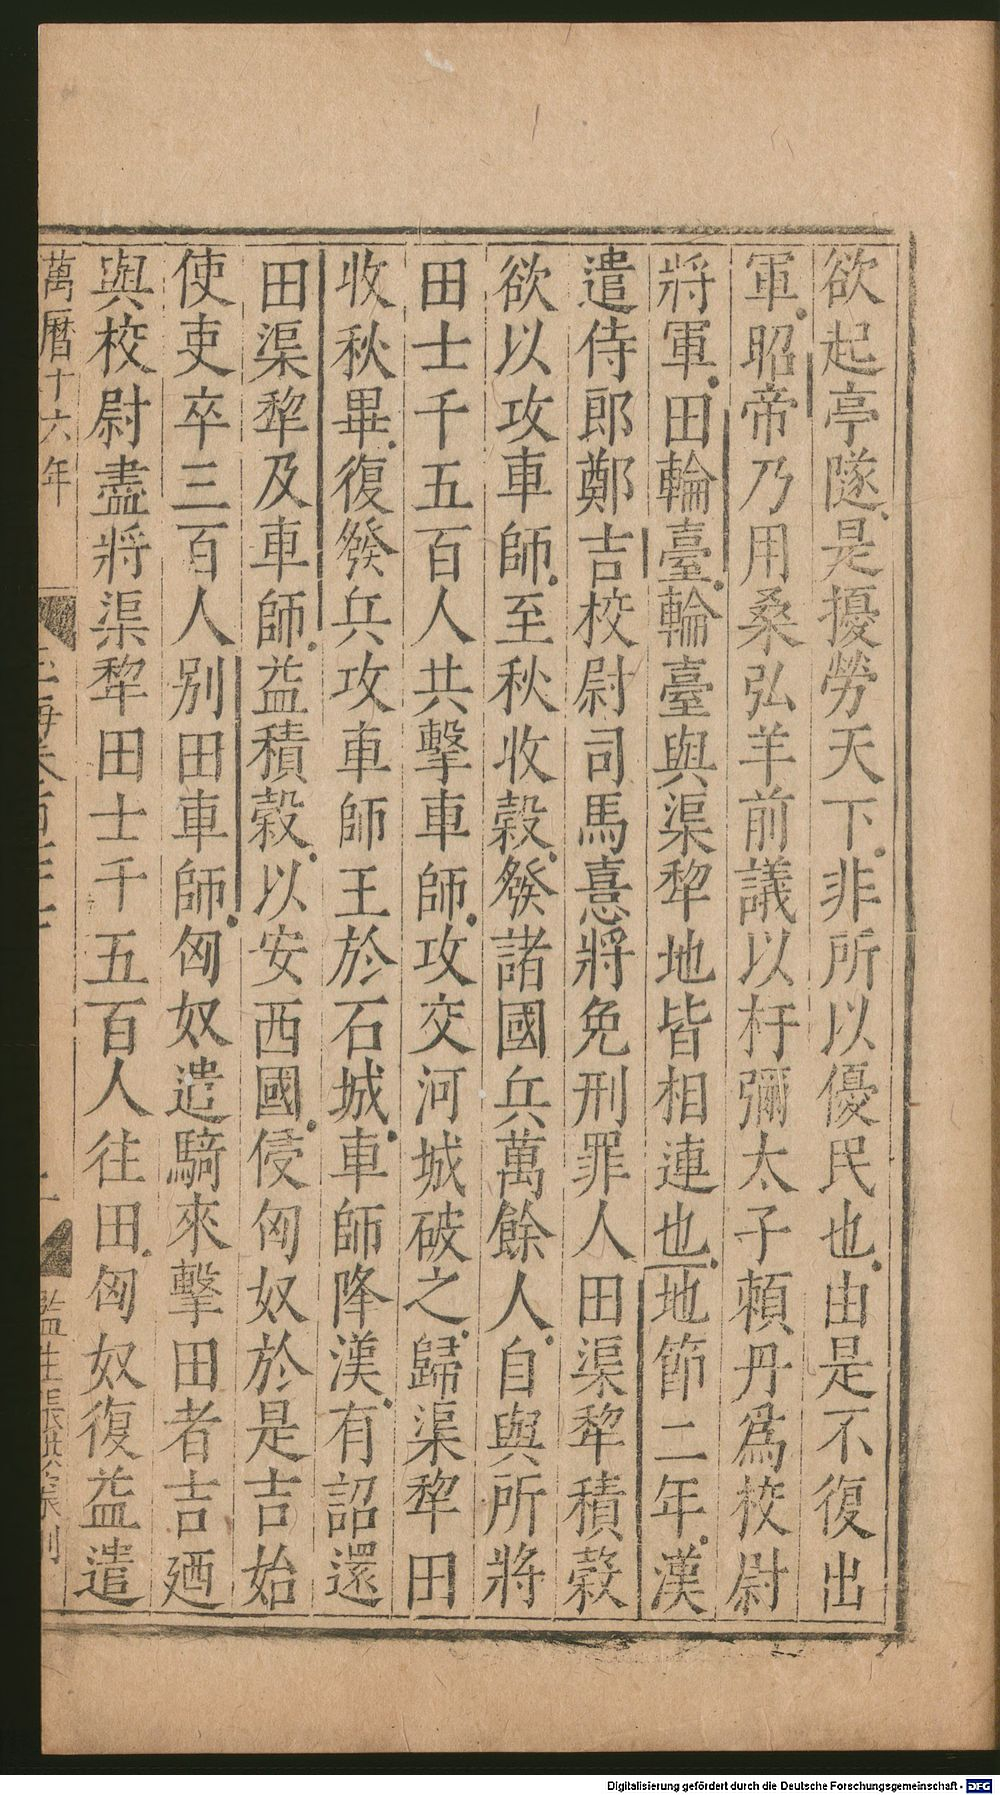 欲起亭隧是擾勞天下非所以優民也由是不復出
軍昭帝乃用桑弘羊前議以杅彌太子賴丹爲校尉
將軍田輪臺輪臺與渠犂地皆相連也地節二年漢
遣侍郎鄭吉校尉司馬憙將免刑罪人田渠犂積穀
欲以攻車師至秋收穀發諸國兵萬餘人自與所將
田士千五百人共擊車師攻交河城破之歸渠犂田
收秋畢復發兵攻車師王於石城車師降漢有詔還
田渠犂及車師益積穀以安西國侵匈奴於是吉始
使吏卒三百人別田車師匈奴遣騎來擊田者吉廼
與校尉盡將渠犂田士千五百人往田匈奴復益遣
萬曆十六年
海卷百七十
監生張
刊
Digitalisierung gefördert durch die Deutsche Forschungsgemeinschaft - DFG